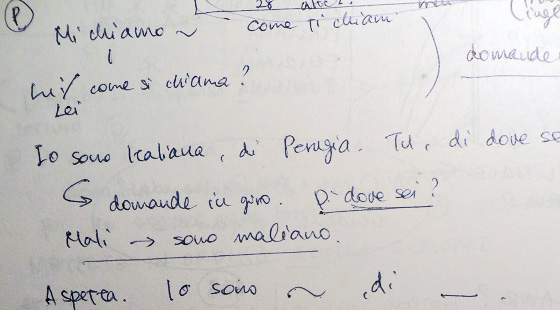 28
P Mi chiamo ~ come ti chiami
Lui/ come si chiama?
Lei
domande
Io sono Italiana, di Perugia. Tu, di dove se
↳ domande in giro. Di dove sei?
Mali → sono maliano.
Aspetta. Io sono ~, di __.